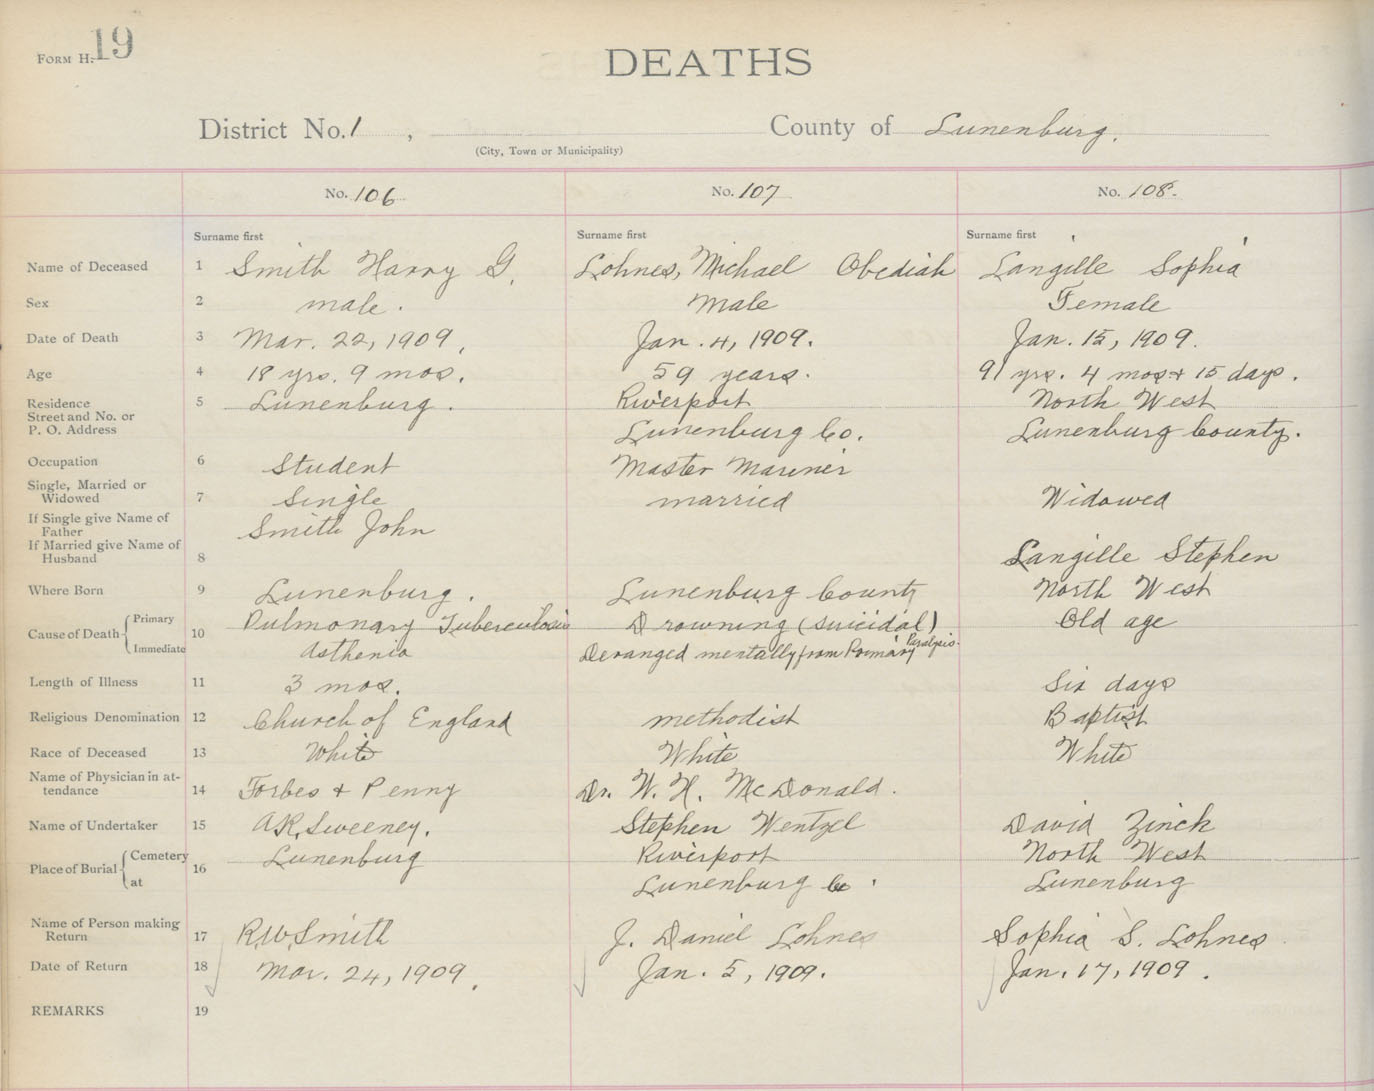 FORM H. 19
DEATHS
District No. 1 , County of Lunenburg.
(City, Town or Municipality)
No. 106 No. 107 No. 108.
Surname first Surname first Surname first
Name of Deceased 1 Smith Harry G. Lohnes, Michael Obediah Langille Sophia
Sex 2 male. Male Female
Date of Death 3 Mar. 22, 1909. Jan. 4, 1909. Jan. 15, 1909.
Age 4 18 yrs. 9 mos. 59 years. 91 yrs. 4 mos + 15 days.
Residence 5 Lunenburg. Riverport North West
Street and No. or
P. O. Address Lunenburg Co. Lunenburg County.
Occupation 6 Student Master Mariner
Single, Married or
Widowed 7 Single married Widowed
If Single give Name of
Father Smith John
If Married give Name of
Husband 8 Langille Stephen
Where Born 9 Lunenburg. Lunenburg County North West
Cause of Death 10 Primary Pulmonary Tuberculosis Drowning (suicidal) Old age
Immediate Asthenia Deranged mentally from Primary Paralysis.
Length of Illness 11 3 mos. Six days
Religious Denomination 12 Church of England methodist Baptist
Race of Deceased 13 White White White
Name of Physician in at-
tendance 14 Forbes + Penny Dr. W. H. McDonald.
Name of Undertaker 15 A.R. Sweeney. Stephen Wentzel David Zinck
Place of Burial 16 Cemetery Lunenburg Riverport North West
at Lunenburg Co. Lunenburg
Name of Person making
Return 17 R.W. Smith J. Daniel Lohnes Sophia S. Lohnes
Date of Return 18 Mar. 24, 1909. Jan. 5, 1909. Jan. 17, 1909.
REMARKS 19